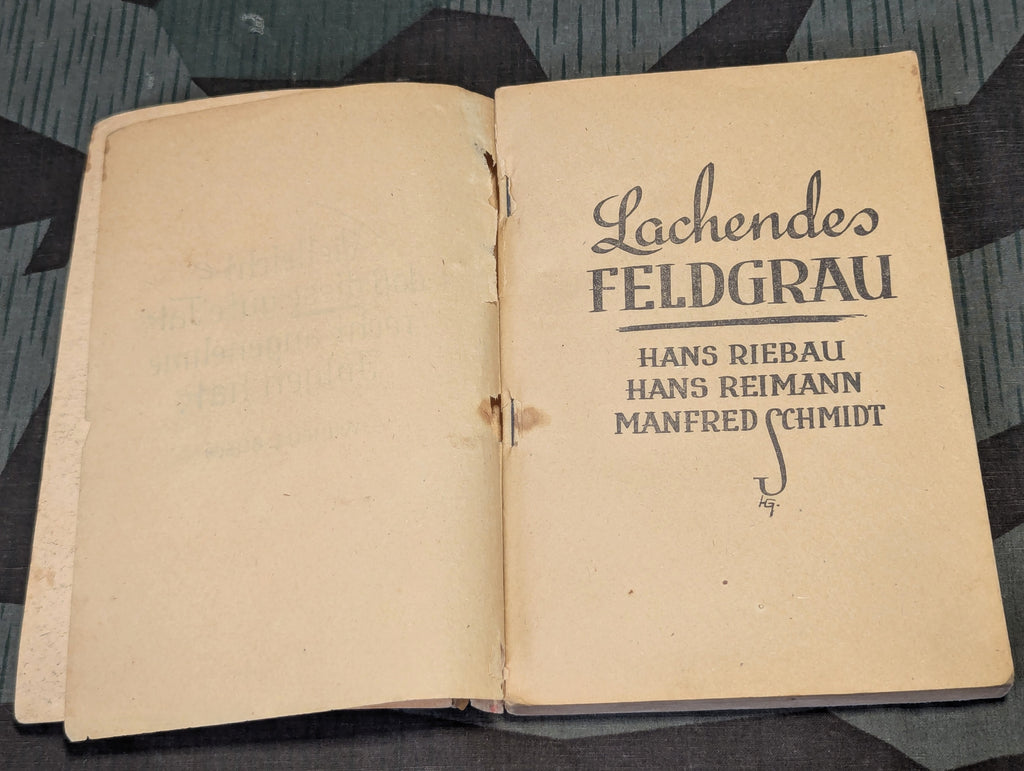 Lachendes
FELDGRAU
HANS RIEBAU
HANS REIMANN
MANFRED SCHMIDT
HG.